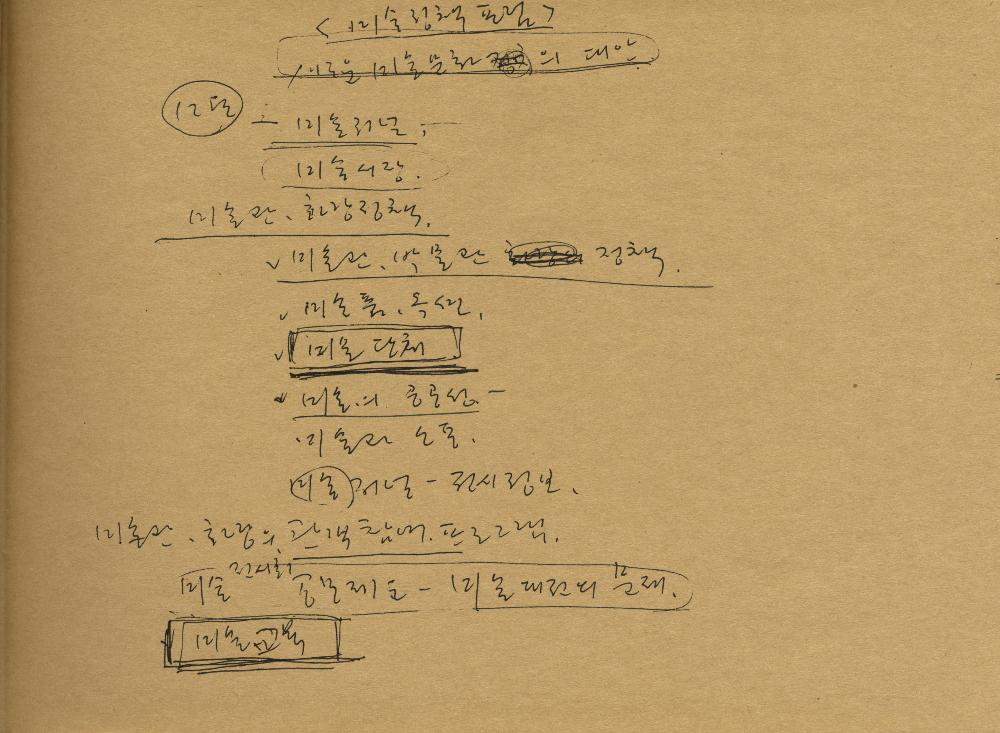 < 미술정책 포럼 >
새로운 미술문화 의 대안
12달 - 미술저널 ;
미술시장.
미술관、화랑정책.
✓ 미술관、박물관 정책.
✓ 미술품、옥션.
✓ 미술단체
✓ 미술의 공공성 -
· 미술과
미술저널 - 전시정보、
미술관、화랑의 관객참여. 프로그램.
미술 전시회 공모제도 - 미술대전의 문제.
미술교육